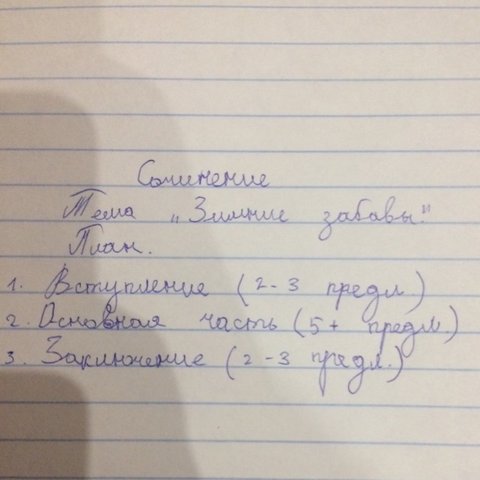 Сочинение
Тема „Зимние забавы."
План.
1. Вступление (2-3 предл)
2. Основная часть (5+ предл)
3. Заключение (2-3 предл.)